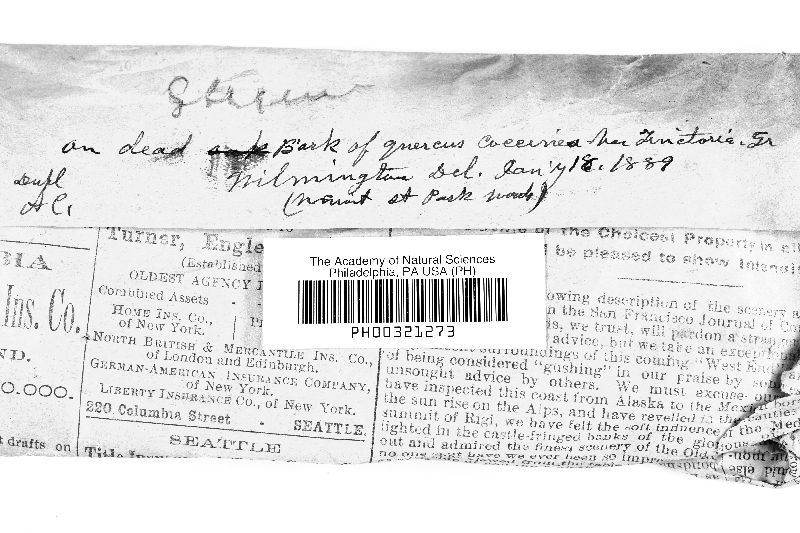 on dead Bark of quercus coccinea Var Tinctoria. Gr
Wilmington Del. Jan'y 18. 1889
Dupl
(
St Park woods)
The Academy of Natural Sciences
Philadelphia, PA USA (PH)
PH00321273
BIA
Ins. Co.
ND.
0.000.
t drafts on
Turner, Engle
(Established
OLDEST AGENCY I
Combined Assets
HOME INS. Co.,
of New York.
NORTH BRITISH & MERCANTILE INS. Co.,
of London and Edinburgh.
GERMAN-AMERICAN INSURANCE COMPANY,
of New York.
LIBERTY INSURANCE Co., of New York.
220 Columbia Street - SEATTLE.
SEATTLE
of the Choicest Property in all
be pleased to show intendi
owing description of the scenery a
n the San Francisco Journal of Co
is, we trust, will pardon a stran
advice, but we take an exceptional
surroundings of this coming "West End
of being considered "gushing" in our praise by some
unsought advice by others. We must excuse our
have inspected this coast from Alaska to the Mexi bor
the sun rise on the Alps, and have revelled in the beauties
summit of Rigi, we have felt the soft indu nce of the Med
lighted in the castle-fringed banks of the glorious
out and admired the finest scenery of the Old
no one that have we ever been so impre